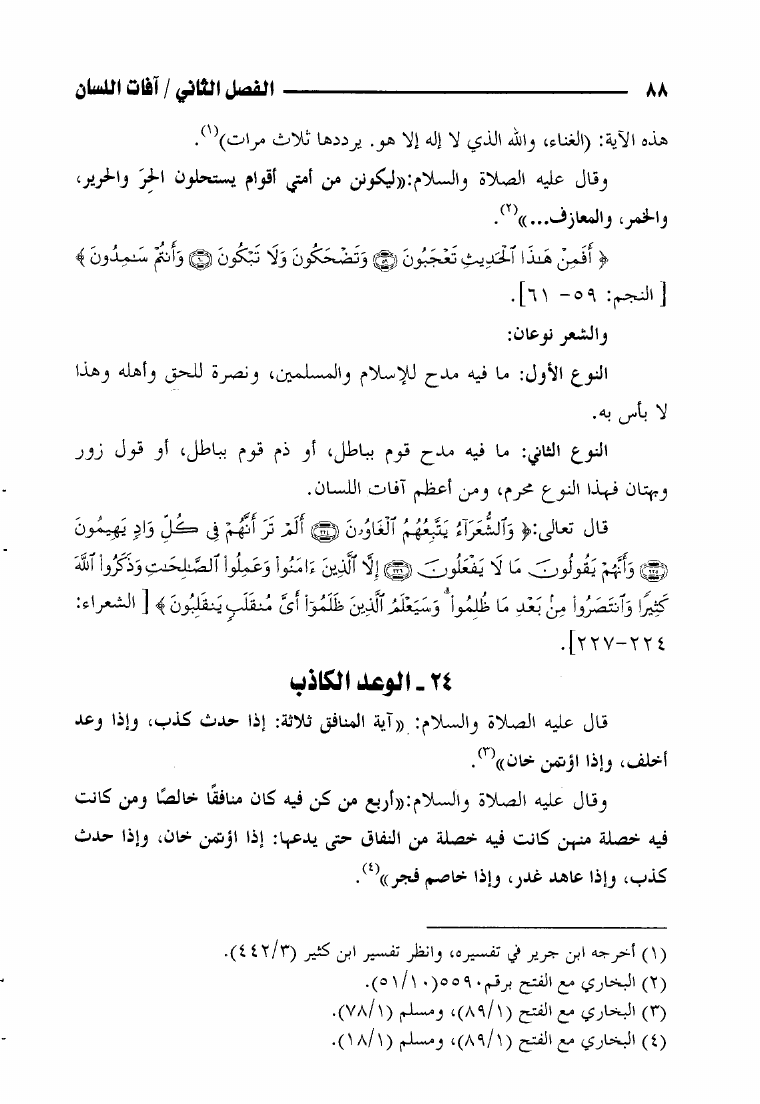 ٨٨ الفصل الثاني / آفات اللسان
هذه الآية: (الغناء، والله الذي لا إله إلا هو. يرددها ثلاث مرات)(١).
وقال عليه الصلاة والسلام:«ليكونن من أمتي أقوام يستحلون الحِرَ والحرير،
والخمر، والمعازف...»(٢).
﴿ أَفَمِنْ هَـٰذَا ٱلْحَدِيثِ تَعْجَبُونَ ۝٥٩ وَتَضْحَكُونَ وَلَا تَبْكُونَ ۝٦٠ وَأَنتُمْ سَـٰمِدُونَ ﴾
[ النجم: ٥٩- ٦١].
والشعر نوعان:
النوع الأول: ما فيه مدح للإسلام والمسلمين، ونصرة للحق وأهله وهذا
لا بأس به.
النوع الثاني: ما فيه مدح قوم بباطل، أو ذم قوم بباطل، أو قول زور
وبهتان فهذا النوع محرم، ومن أعظم آفات اللسان.
قال تعالى:﴿ وَٱلشُّعَرَآءُ يَتَّبِعُهُمُ ٱلْغَاوُۥنَ ۝٢٢٤ أَلَمْ تَرَ أَنَّهُمْ فِى كُلِّ وَادٍ يَهِيمُونَ
۝٢٢٥ وَأَنَّهُمْ يَقُولُونَ مَا لَا يَفْعَلُونَ ۝٢٢٦ إِلَّا ٱلَّذِينَ ءَامَنُوا۟ وَعَمِلُوا۟ ٱلصَّـٰلِحَـٰتِ وَذَكَرُوا۟ ٱللَّهَ
كَثِيرًا وَٱنتَصَرُوا۟ مِنۢ بَعْدِ مَا ظُلِمُوا۟ ۗ وَسَيَعْلَمُ ٱلَّذِينَ ظَلَمُوٓا۟ أَىَّ مُنقَلَبٍ يَنقَلِبُونَ ﴾ [ الشعراء:
٢٢٤-٢٢٧].
٢٤ ـ الوعد الكاذب
قال عليه الصلاة والسلام: «آية المنافق ثلاثة: إذا حدث كذب، وإذا وعد
أخلف، وإذا اؤتمن خان»(٣).
وقال عليه الصلاة والسلام:«أربع من كن فيه كان منافقًا خالصًا ومن كانت
فيه خصلة منهن كانت فيه خصلة من النفاق حتى يدعها: إذا اؤتمن خان، وإذا حدث
كذب، وإذا عاهد غدر، وإذا خاصم فجر»(٤).
(١) أخرجه ابن جرير في تفسيره، وانظر تفسير ابن كثير (٤٤٢/٣).
(٢) البخاري مع الفتح برقم٥٥٩٠(٥١/١٠).
(٣) البخاري مع الفتح (٨٩/١)، ومسلم (٧٨/١).
(٤) البخاري مع الفتح (٨٩/١)، ومسلم (١٨/١).